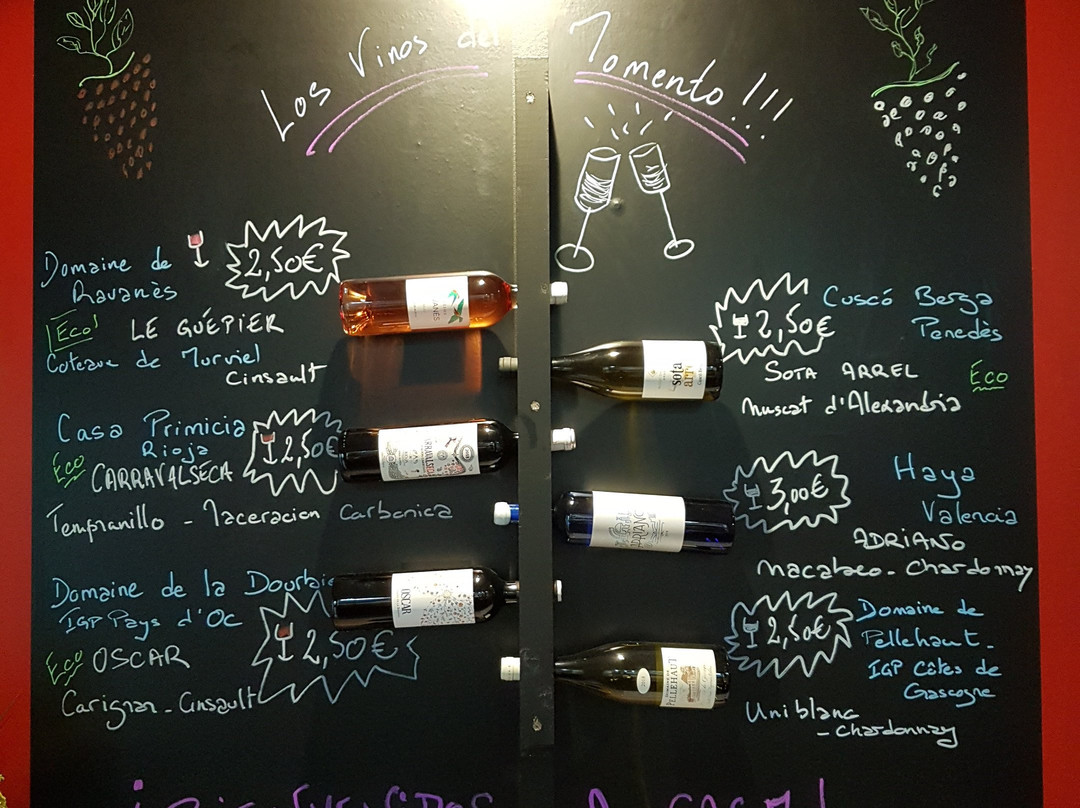 Los Vinos del Momento!!!
Domaine de
Ravanès
2,50€
Eco! LE GUÉPIER
Coteaux de Murviel
Cinsault
Casa Primicia
Rioja
2,50€
Eco CARRAVALSECA
Tempranillo - Maceracion Carbonica
Domaine de la Dourbie
IGP Pays d'Oc
2,50€
Eco OSCAR
Carignan - Cinsault
2,50€
Cuscó Berga
Penedès
SOTA ARREL
Eco
Muscat d'Alexandria
Sota
arrel
3,00€
Haya
Valencia
ADRIANO
Macabeo - Chardonnay
ADRIANO
2,50€
Domaine de
Pellehaut -
IGP Côtes de
Gascogne
PELLEHAUT
Uniblanc
- Chardonnay